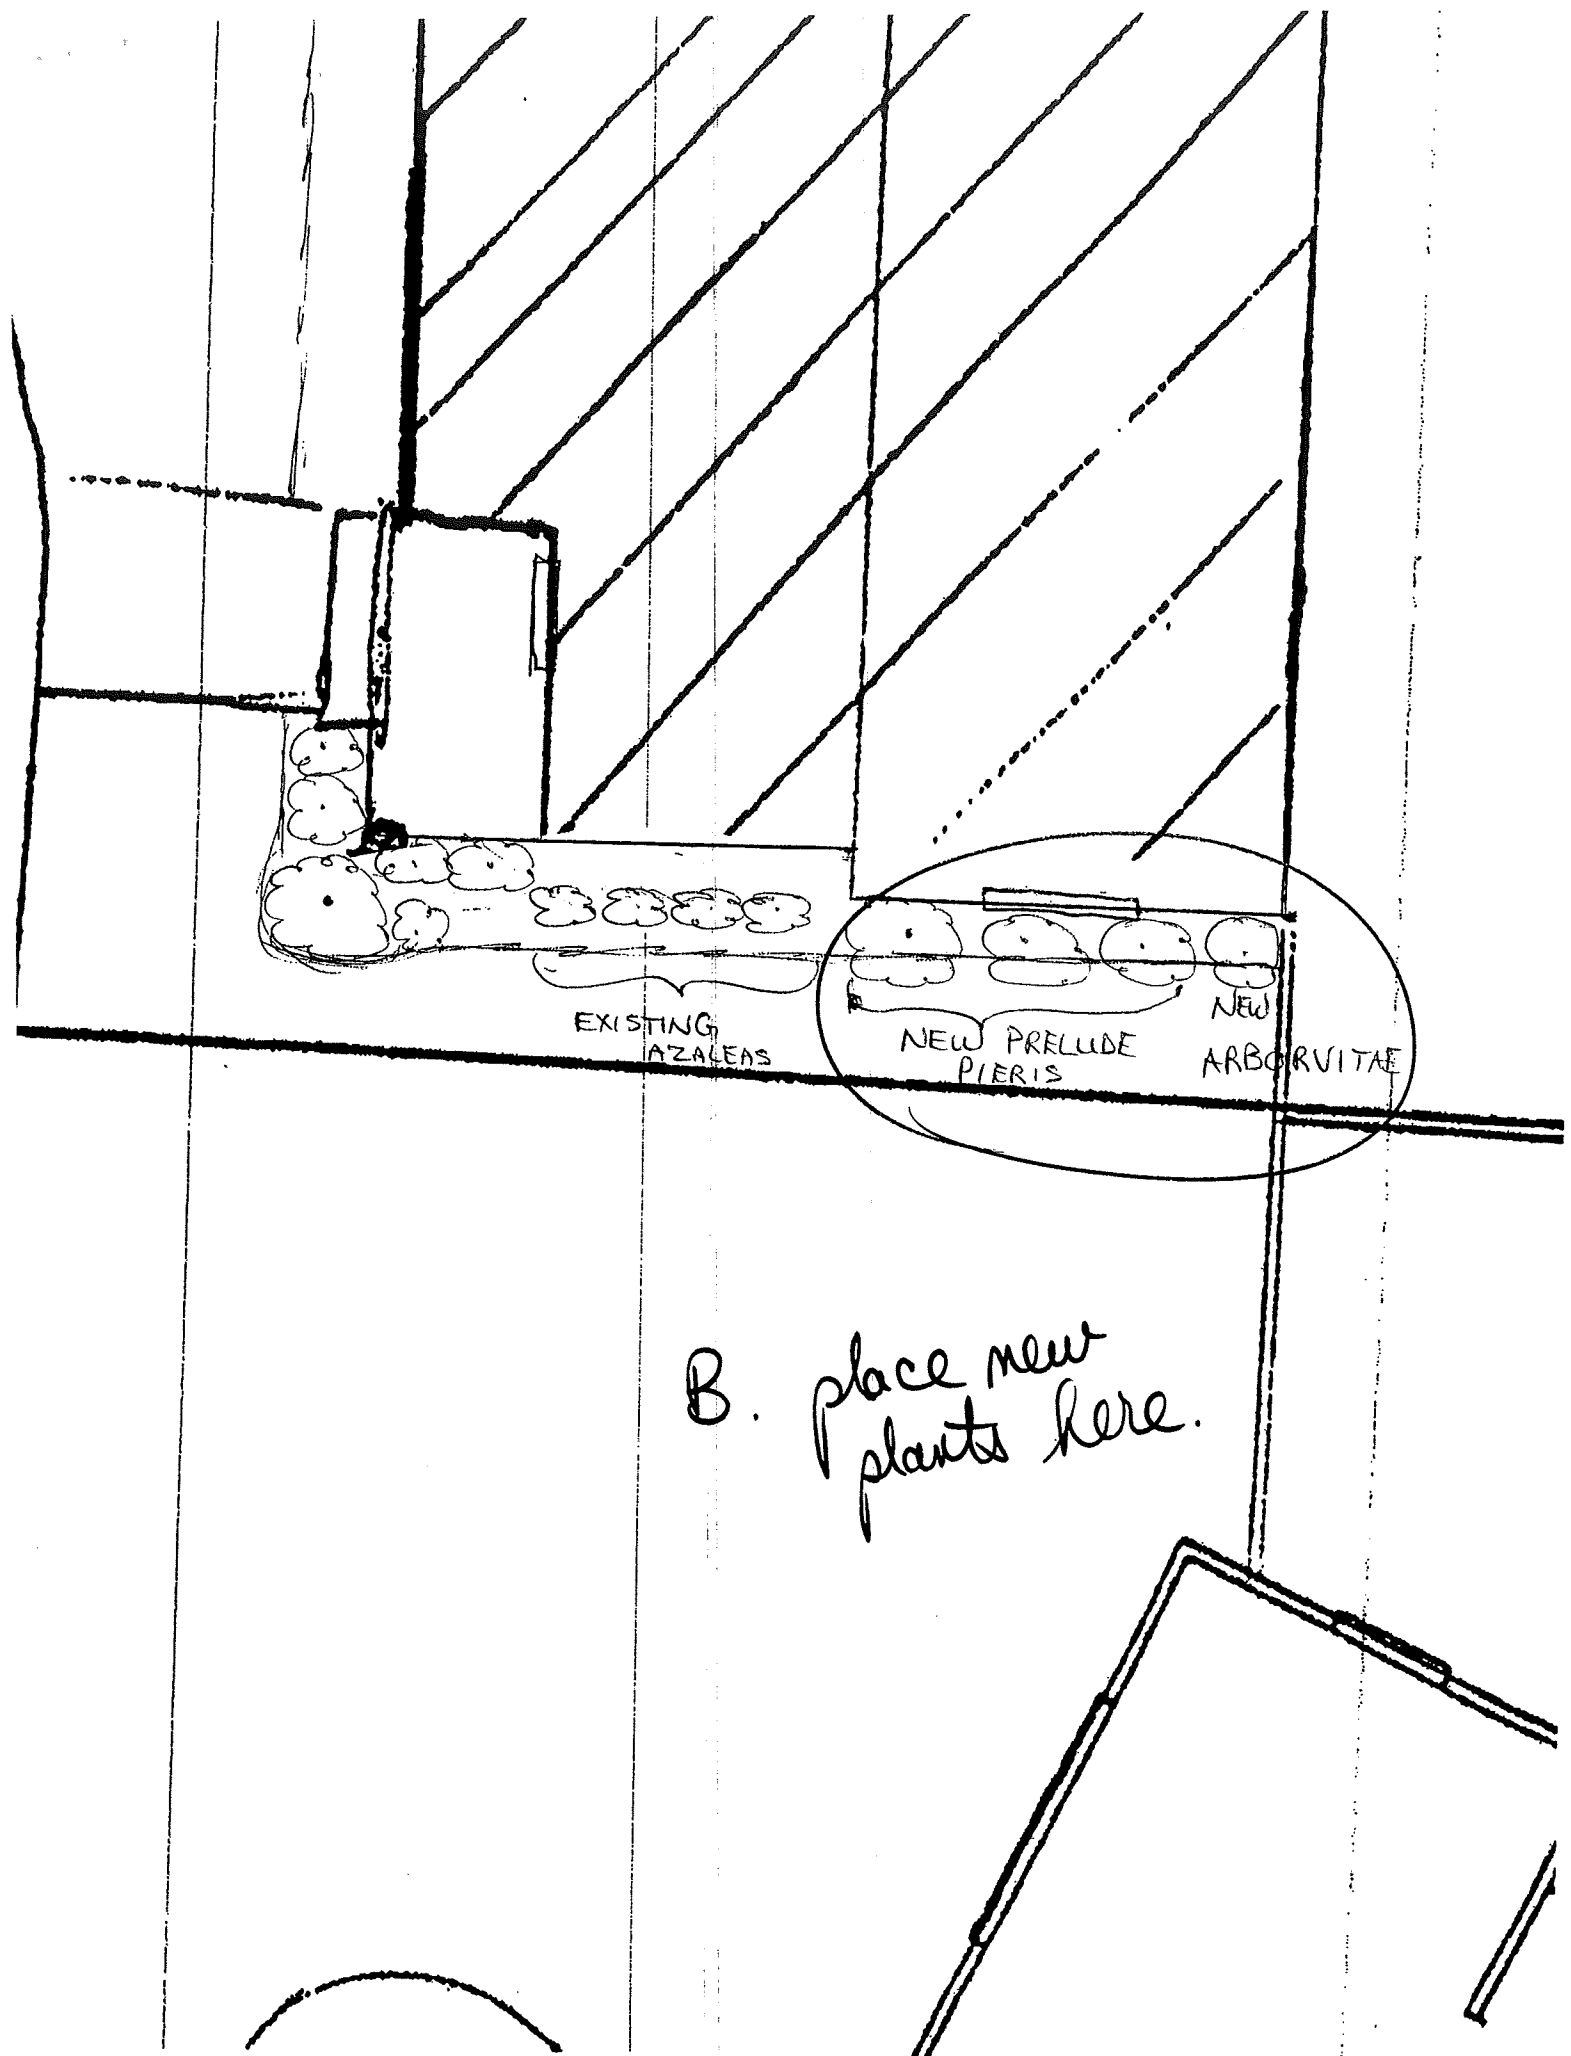 EXISTING
AZALEAS
NEW PRELUDE
PIERIS
NEW
ARBORVITAE
B. place new
plants here.